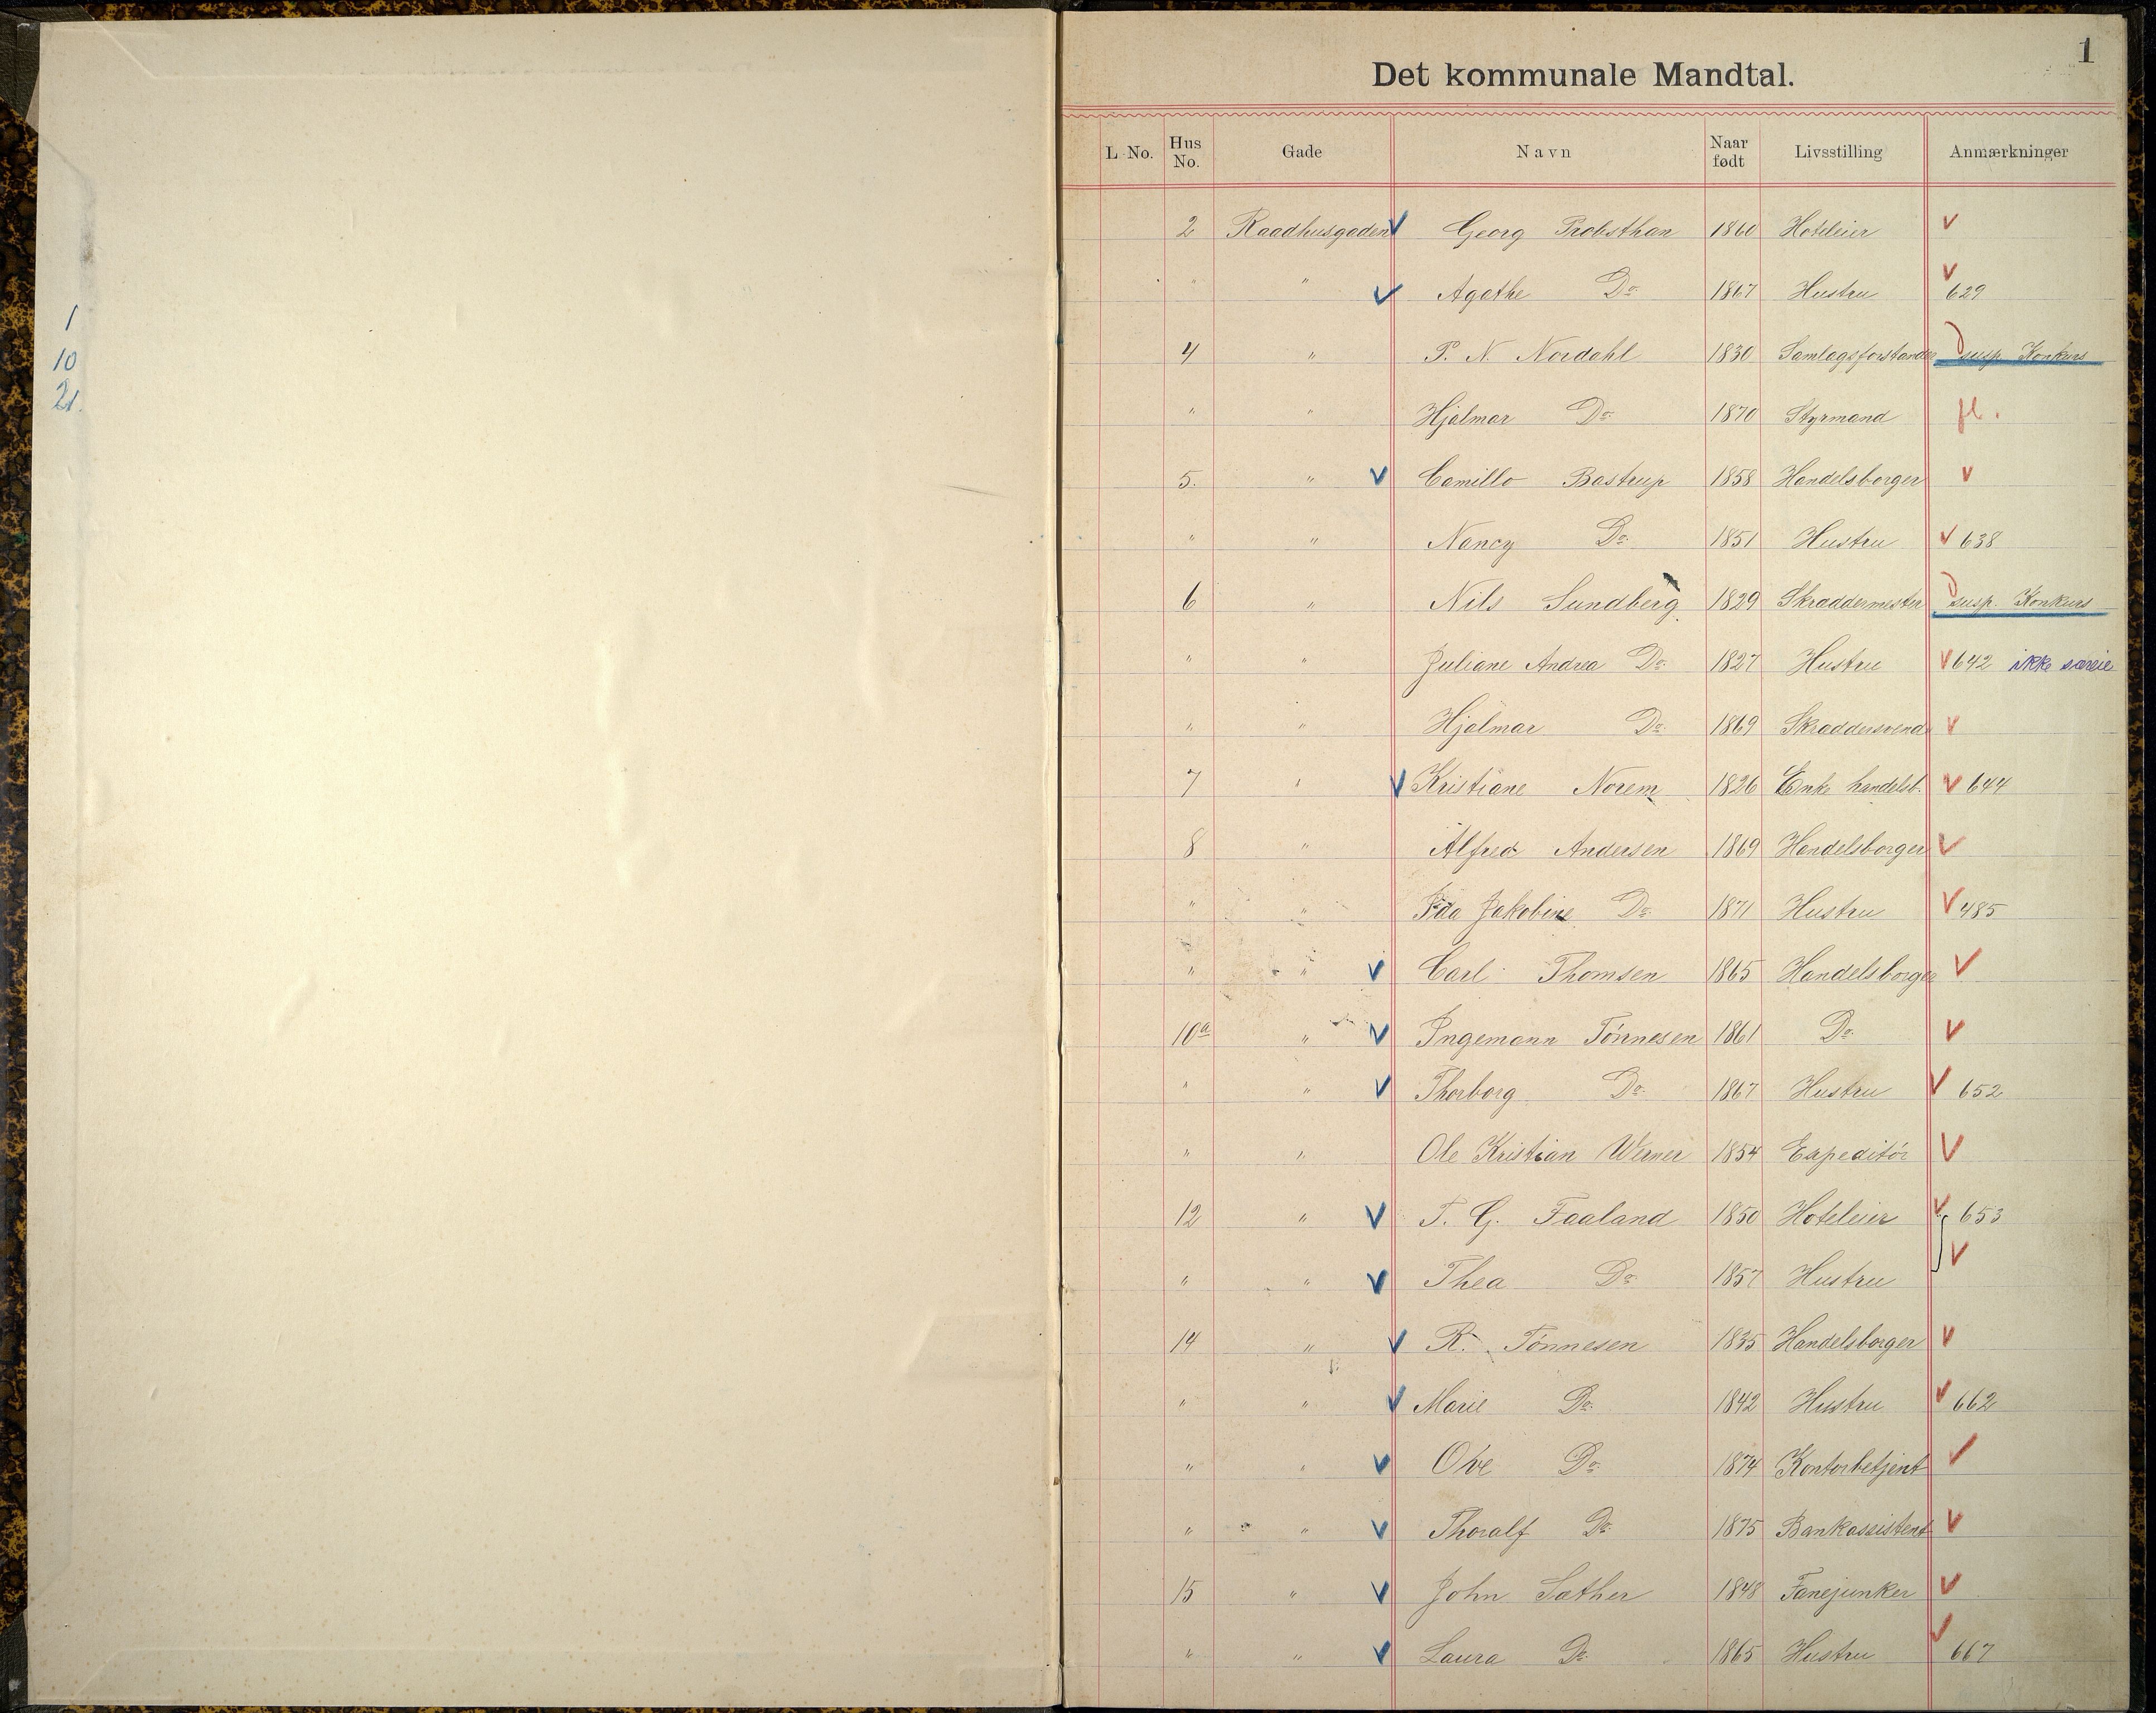 1
10
21.
1
Det kommunale Mandtal.
L. No. Hus No. Gade Navn Naar født Livsstilling Anmærkninger
2 Raadhusgaden V Georg Probsthan 1860 Hoteleier V
" " V Agathe Do 1867 Hustru V 629
4 " P. N. Nordahl 1830 Samlagsforstander susp. Konkurs
" " Hjalmar Do 1870 Styrmand fl.
5. " V Camillo Bastrup 1858 Handelsborger V
" " Nancy Do 1851 Hustru V 638
6 " Nils Sundberg 1829 Skraddermester susp. Konkurs
" " Juliane Andrea Do 1827 Hustru V 642 ikke særeie
" " Hjalmar Do 1869 Skraddersvend V
7 " V Kristiane Norem 1826 Enke handelsb. V 644
8 " Alfred Andersen 1869 Handelsborger V
" " Ida Jakobine Do 1871 Hustru V 485
" " V Carl Thomsen 1865 Handelsborger V
10a " V Ingemann Tönnesen 1861 Do V
" " V Thorborg Do 1867 Hustru V 652
" " Ole Kristian Werner 1854 Expeditör V
12 " V T. G. Faaland 1850 Hoteleier V 653
" " V Thea Do 1857 Hustru V
14 " V R. Tönnesen 1835 Handelsborger V
" " V Marie Do 1842 Hustru V 662
" " V Ove Do 1874 Kontorbetjent V
" " V Thoralf Do 1875 Bankassistent V
15 " V John Sæther 1848 Fanejunker V
" " V Laura Do 1865 Hustru V 667